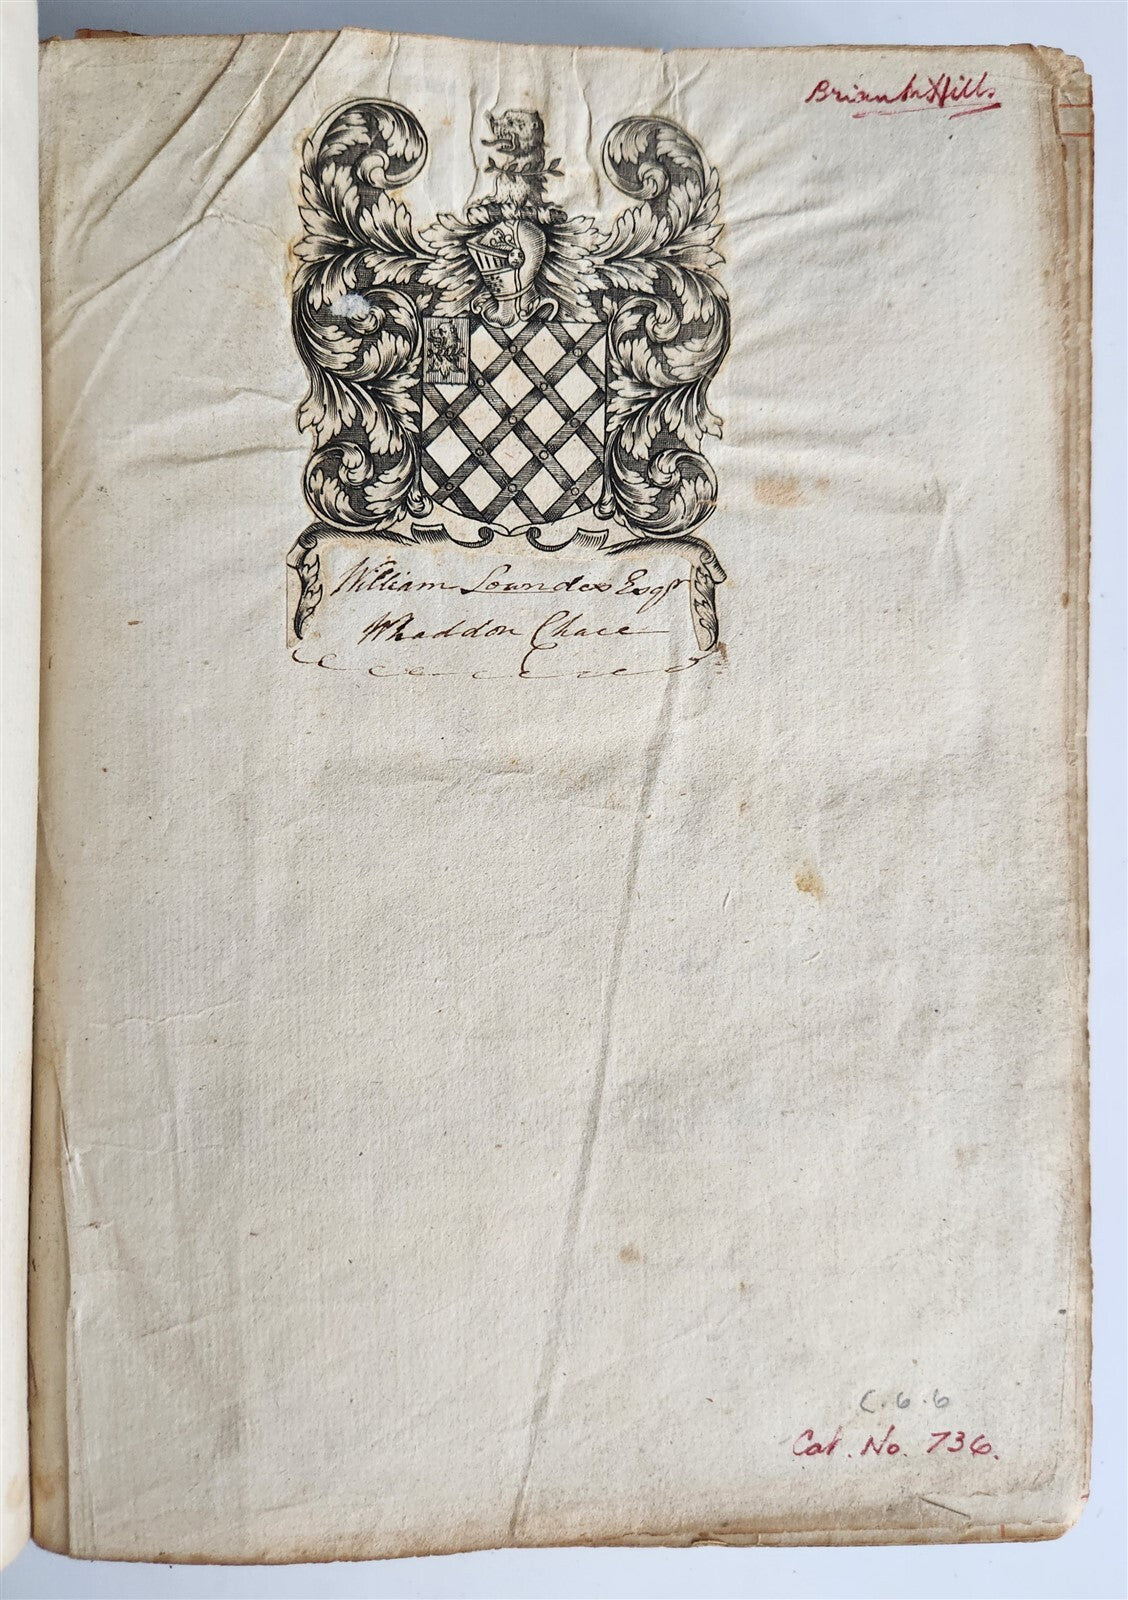 Brian M Hill.
William Lowndes Esqr
Whaddon Chace
C.6.6
Cat. No. 736.